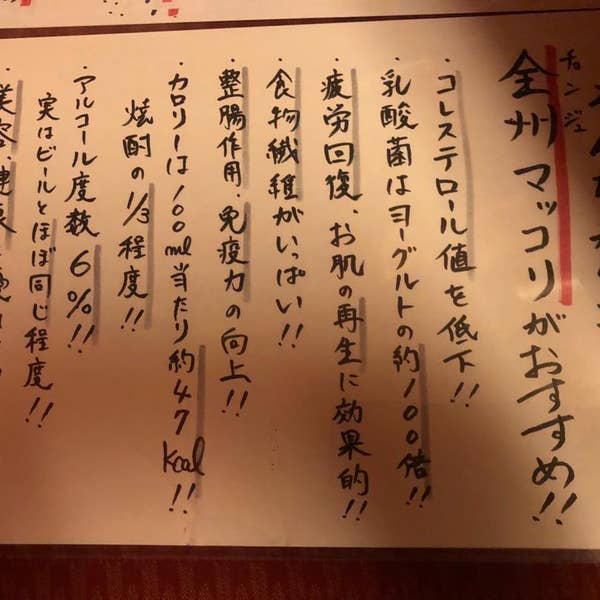 チョンジュ
全州マッコリがおすすめ!!
・コレステロール値を低下!!
・乳酸菌はヨーグルトの約100倍!!
・疲労回復、お肌の再生に効果的!!
・食物繊維がいっぱい!!
・整腸作用、免疫力の向上!!
・カロリーは100ml当たり約47kcal!!
焼酎の1/3程度!!
・アルコール度数6%!!
実はビールとほぼ同じ程度!!